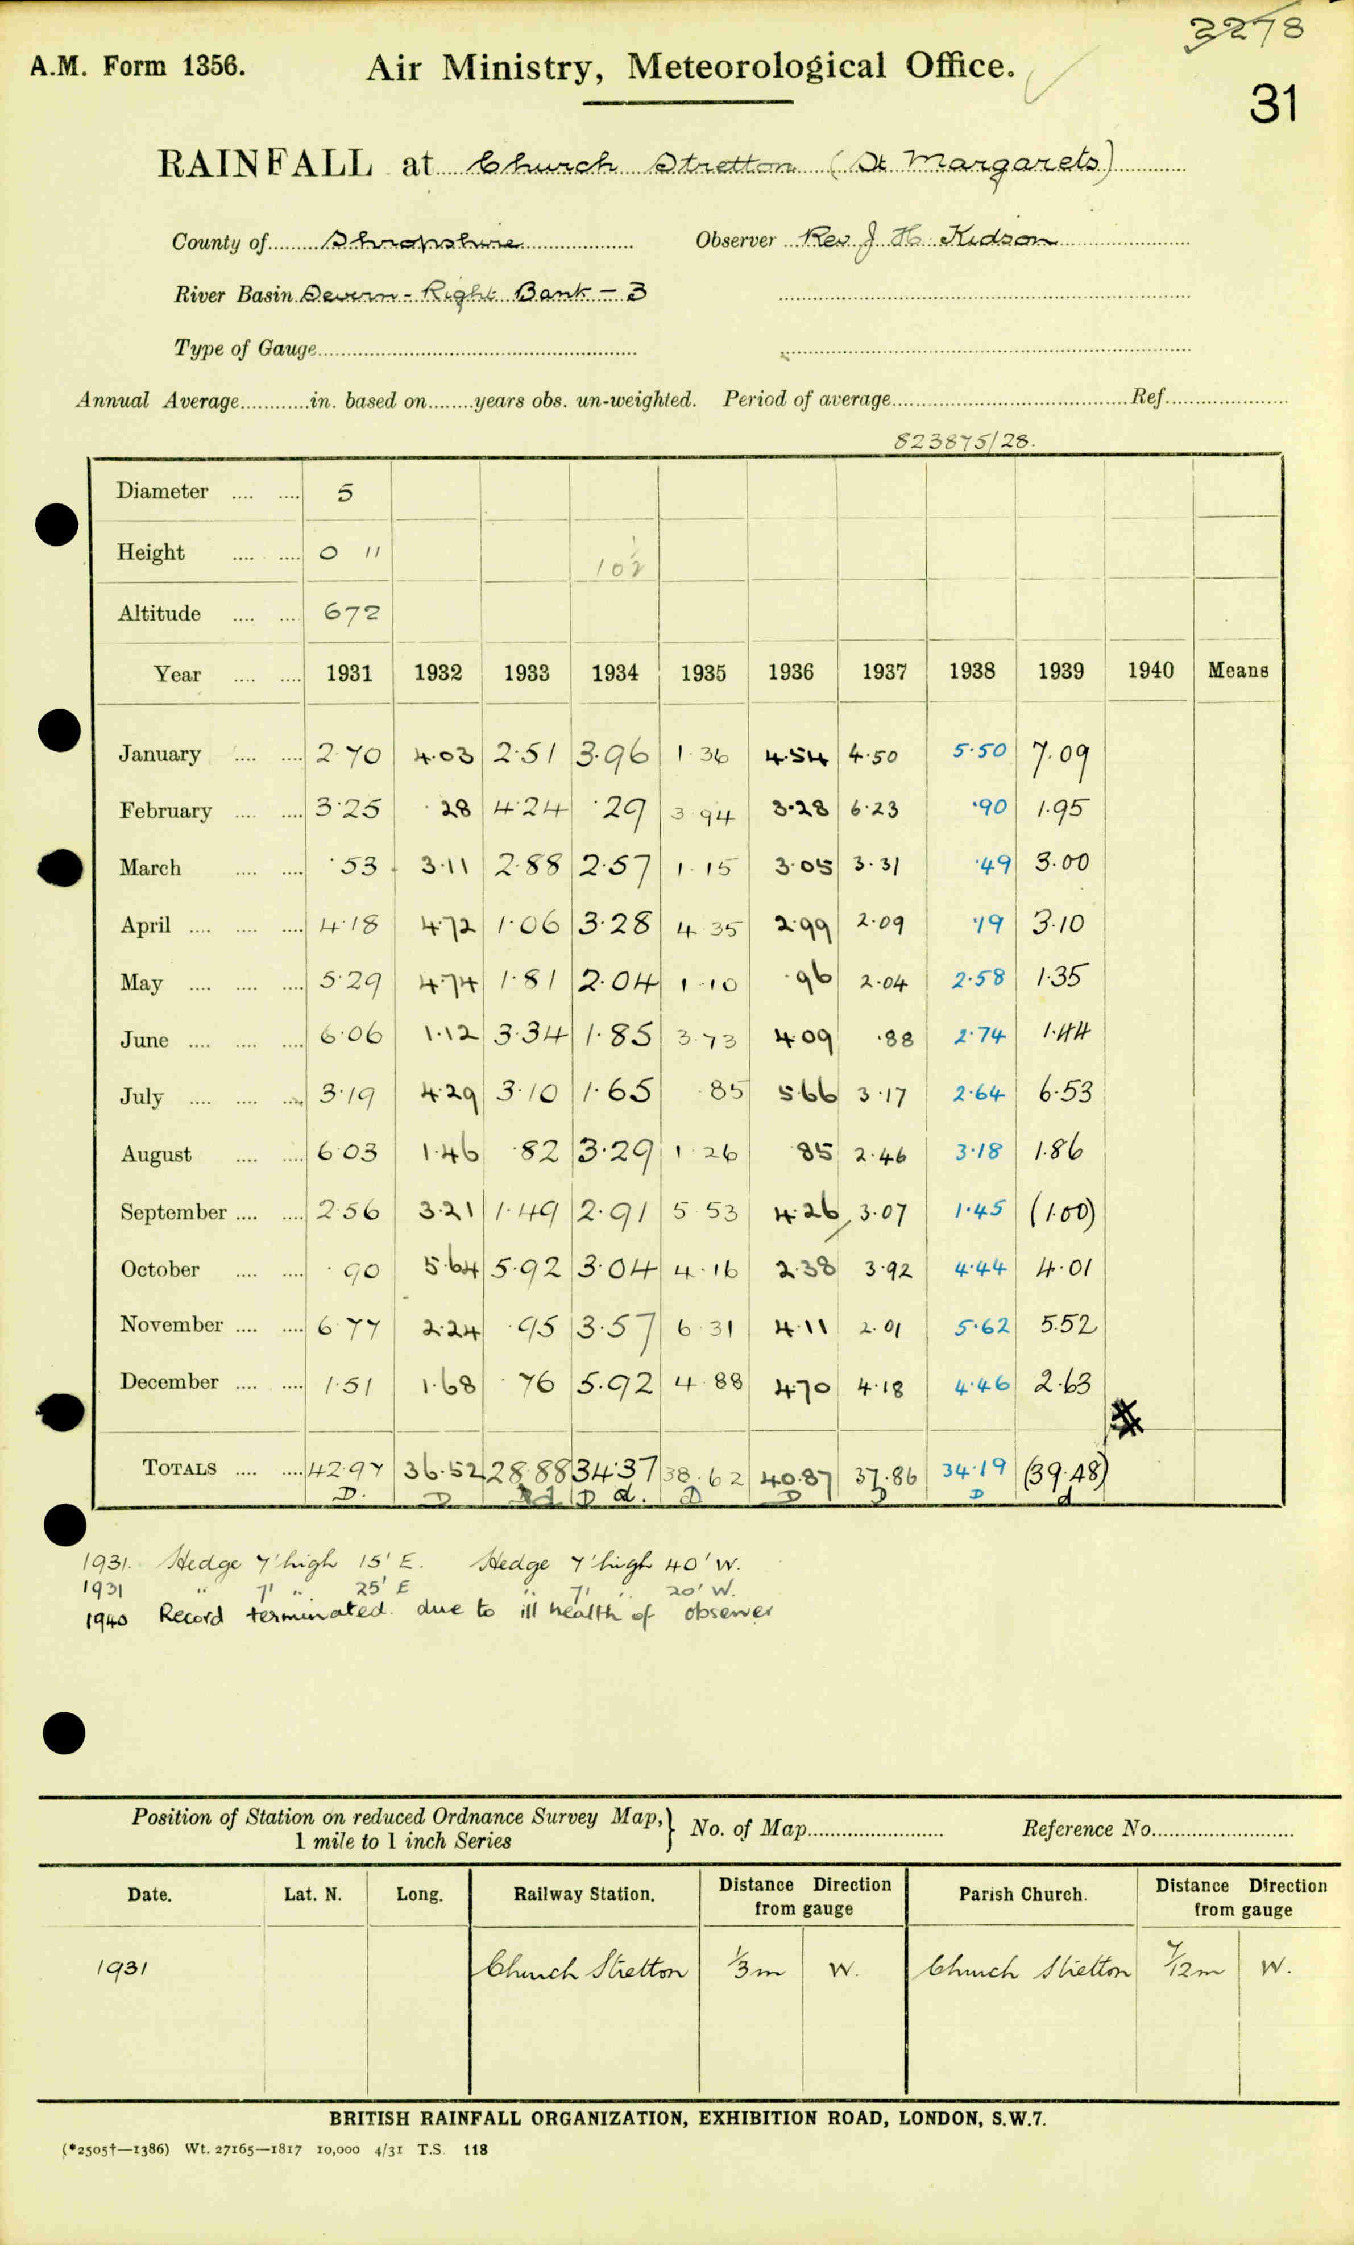 3278
A.M. Form 1356. Air Ministry, Meteorological Office.
31
RAINFALL at Church Stretton (St Margarets)
County of Shropshire Observer Rev J H Kidson
River Basin Severn - Right Bank - 3
Type of Gauge
Annual Average in. based on years obs. un-weighted. Period of average Ref.
823875/28.
Diameter 5
Height 0 11 10½
Altitude 672
Year 1931 1932 1933 1934 1935 1936 1937 1938 1939 1940 Means
January 2·70 4·03 2·51 3·96 1·36 4·54 4·50 5·50 7·09
February 3·25 ·28 4·24 ·29 3·94 3·28 6·23 ·90 1·95
March ·53 3·11 2·88 2·57 1·15 3·05 3·31 ·49 3·00
April 4·18 4·72 1·06 3·28 4·35 2·99 2·09 ·19 3·10
May 5·29 4·74 1·81 2·04 1·10 ·96 2·04 2·58 1·35
June 6·06 1·12 3·34 1·85 3·73 4·09 ·88 2·74 1·44
July 3·19 4·29 3·10 1·65 ·85 5·66 3·17 2·64 6·53
August 6·03 1·46 ·82 3·29 1·26 ·85 2·46 3·18 1·86
September 2·56 3·21 1·49 2·91 5·53 4·26 3·07 1·45 (1·00)
October ·90 5·64 5·92 3·04 4·16 2·38 3·92 4·44 4·01
November 6·77 2·24 ·95 3·57 6·31 4·11 2·01 5·62 5·52
December 1·51 1·68 ·76 5·92 4·88 4·70 4·18 4·46 2·63
TOTALS 42·97 36·52 28·88 34·37 38·62 40·87 37·86 34·19 (39·48)
D. D d D d. D D D D d
1931. Hedge 7' high 15' E. Hedge 7' high 40' W.
1931 " 7' " 25' E " 7' " 20' W.
1940 Record terminated due to ill health of observer
Position of Station on reduced Ordnance Survey Map, 1 mile to 1 inch Series } No. of Map Reference No.
Date. Lat. N. Long. Railway Station. Distance Direction from gauge Parish Church. Distance Direction from gauge
1931 Church Stretton 1/3 m W. Church Stretton 7/12 m W.
BRITISH RAINFALL ORGANIZATION, EXHIBITION ROAD, LONDON, S.W.7.
(*2505†—1386) Wt. 27165—1817 10,000 4/31 T.S. 118